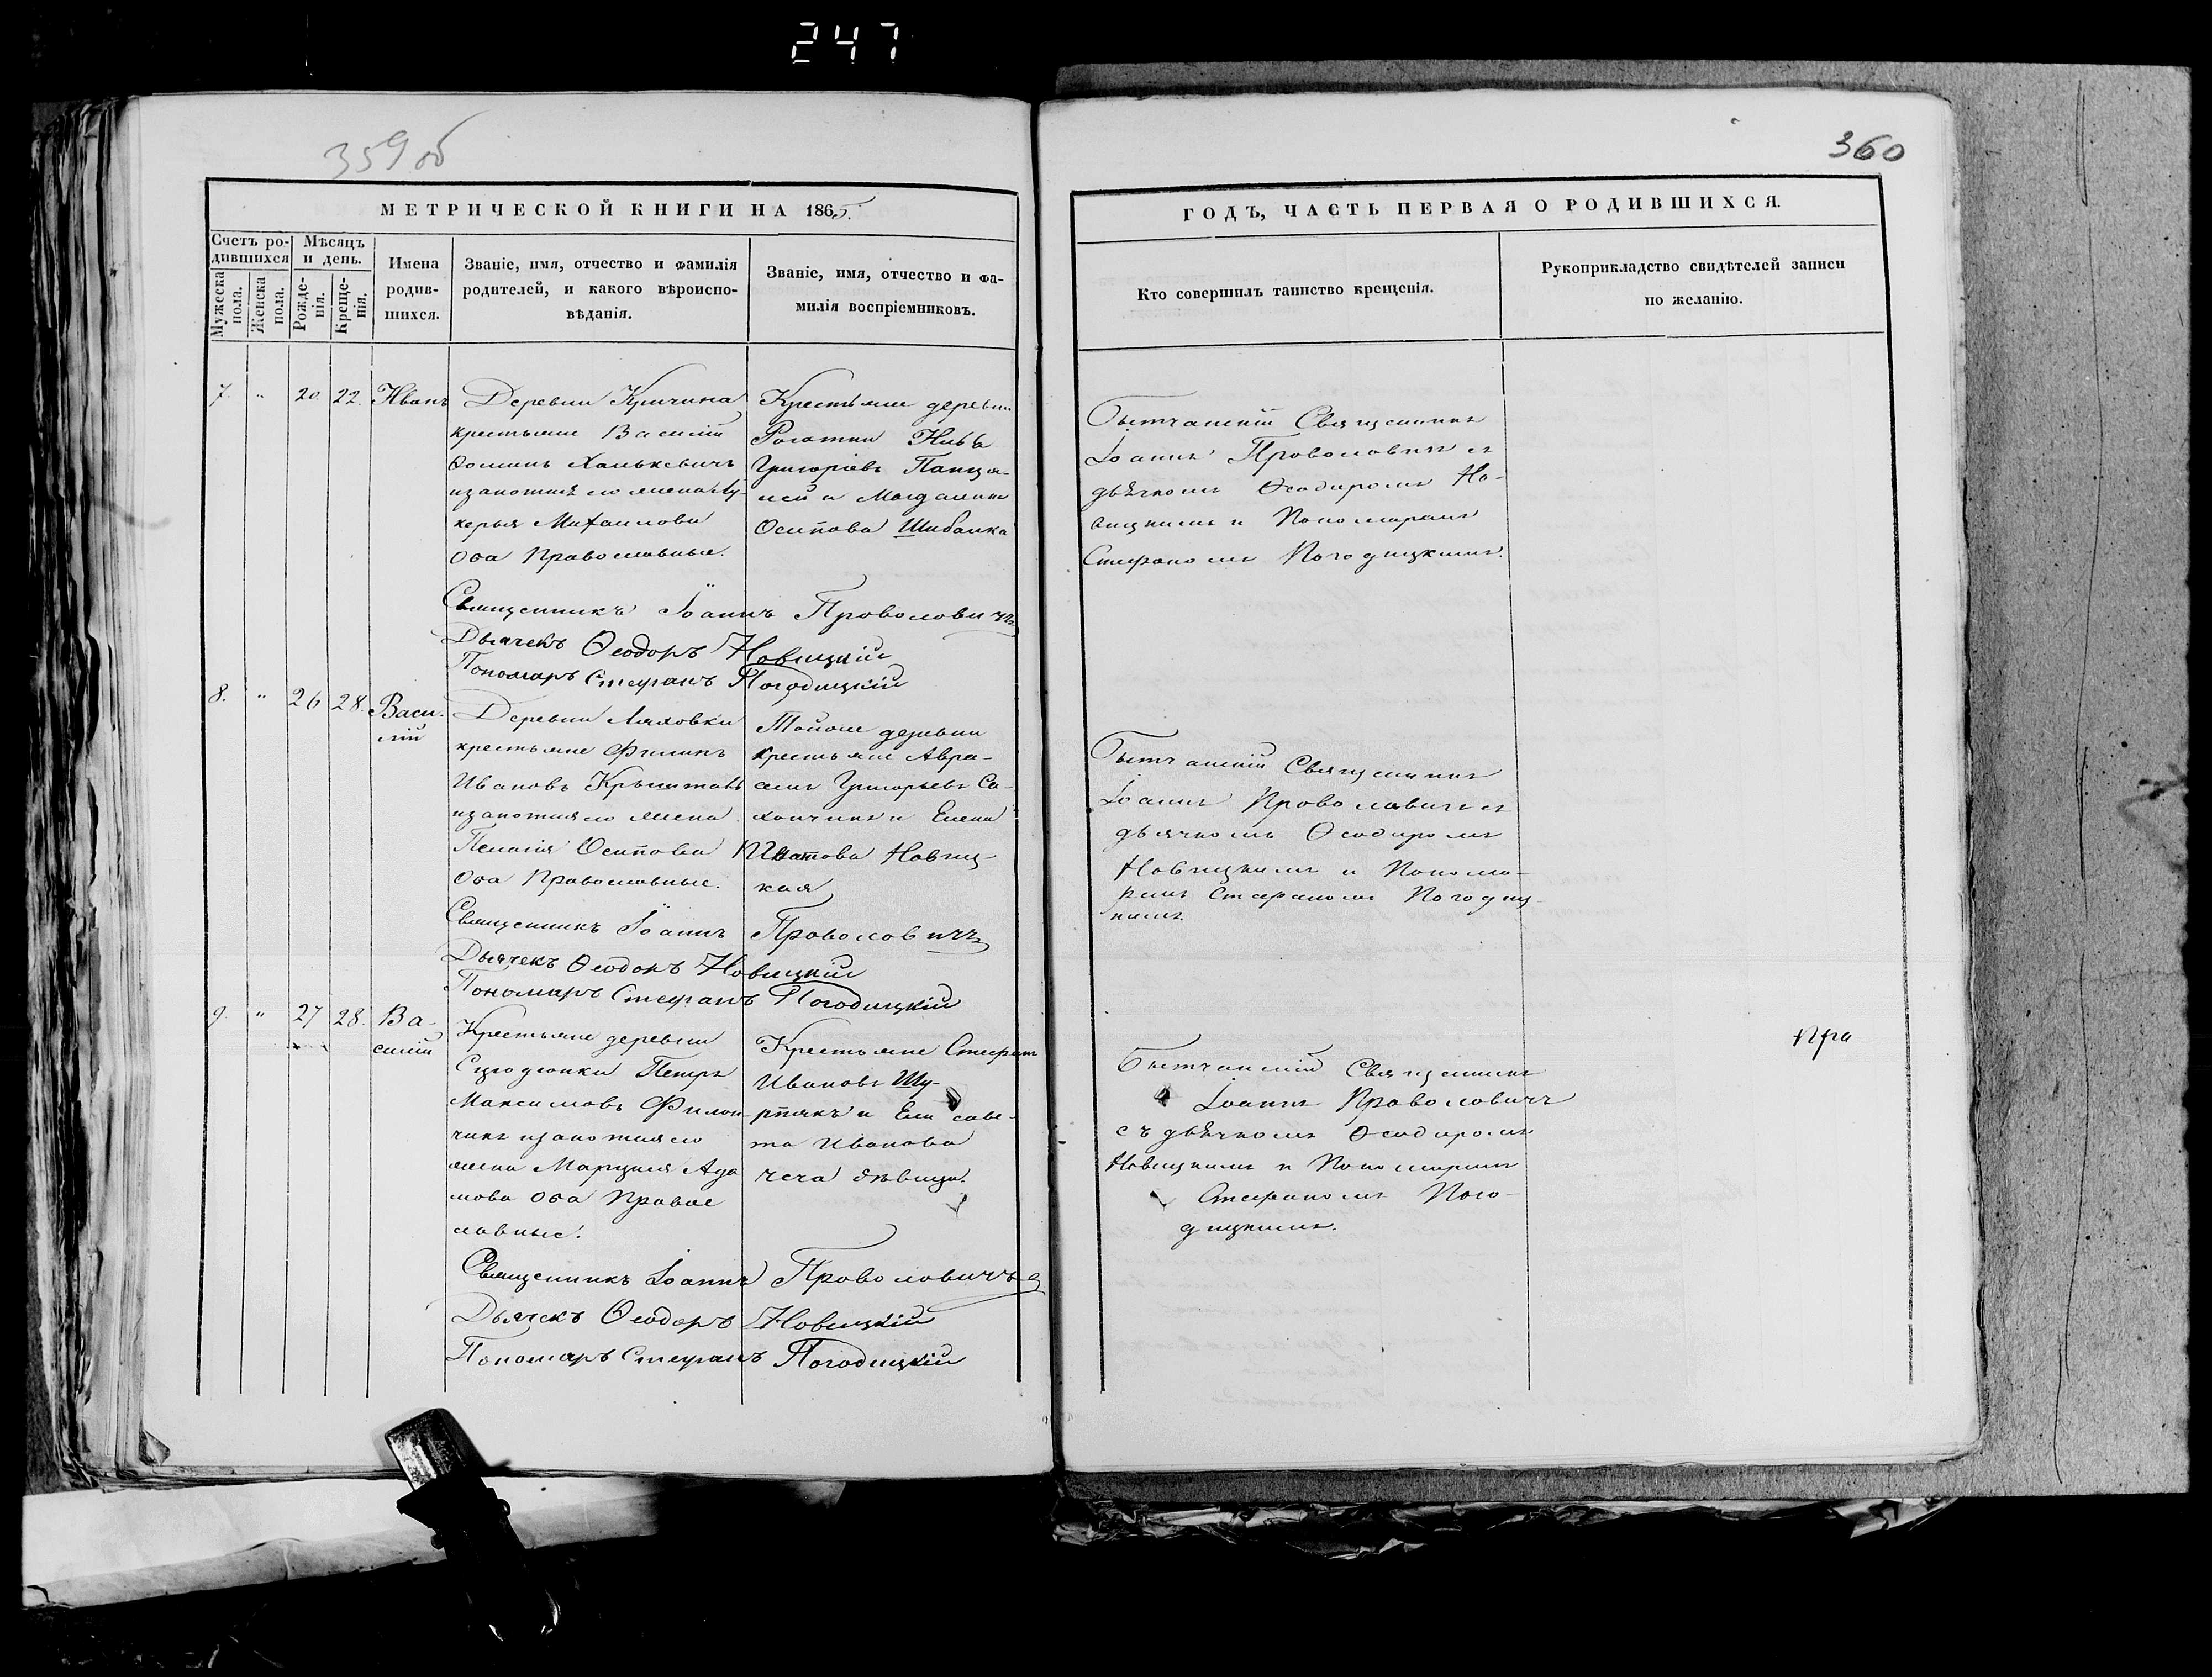 247
359 об
360
МЕТРИЧЕСКОЙ КНИГИ НА 1865.
Счетъ ро-
дившихся
Мѣсяцъ
и день.
Мужеска
пола.
Женска
пола.
Рожде-
нія.
Креще-
нія.
Имена
родив-
шихся.
Званіе, имя, отчество и фамилія
родителей, и какого вѣроиспо-
вѣданія.
Званіе, имя, отчество и фа-
милія воспріемниковъ.
7. " 20. 22. Иванъ
Деревни Кричина
крестьяне Василій
Фоминъ Ханькевичъ
изаконная его жена Лу-
керья Михаилова
Оба Православные.
Крестьяне деревни
Рогатни
Григоріевъ
и Магдалина
Осипова Шибалка
Священникъ Іоаннъ Проволовичъ
Дьячекъ Ѳеодоръ Новицкій
Пономарь Стефанъ Погодицкій
8. " 26 28. Васи-
лій
Деревни Ляховки
крестьяне Филипъ
Ивановъ
изаконная его жена
Пелагія Осипова
Оба Православные.
Тойже деревни
крестьяне Авра-
амъ Григорьевъ Са-
и Елена
Новиц-
кая
Священникъ Іоаннъ Проволовичъ
Дьячекъ Ѳеодоръ Новицкій
Пономарь Стефанъ Погодицкій
9. " 27 28. Ва-
силій
Крестьяне деревни
Петръ
Максимовъ Филон-
чикъ изаконная его
жена Марцеля Ада
мова Оба Правос
лавные.
Крестьяне Стефанъ
Ивановъ Шу-
рпякъ и Елисаве-
та Иванова
дѣвица.
Священникъ Іоаннъ Проволовичъ
Дьячекъ Ѳеодоръ Новицкій
Пономарь Стефанъ Погодицкій
ГОДЪ, ЧАСТЬ ПЕРВАЯ О РОДИВШИХСЯ.
Кто совершилъ таинство крещенія.
Рукоприкладство свидѣтелей записи
по желанію.
Бытчанскій Священникъ
Іоаннъ Проволовичъ съ
дьячкомъ Ѳеодоромъ Но-
вицкимъ и Пономаремъ
Стефаномъ Погодицкимъ.
Бытчанскій Священникъ
Іоаннъ Проволовичъ съ
дьячкомъ Ѳеодоромъ
Новицкимъ и Понома-
ремъ Стефаномъ Погодиц-
кимъ.
Бытчанскій Священникъ
Іоаннъ Проволовичъ
съ дьячкомъ Ѳеодоромъ
Новицкимъ и Пономаремъ
Стефаномъ Пого-
дицкимъ.
Пра